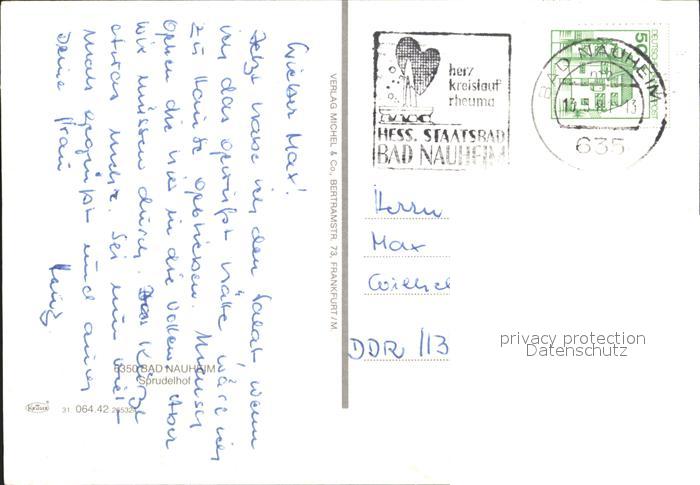 Lieber Max!
Jetzt habe ich den Salat wenn
ich das gewußt hätte wäre ich
zu Hause geblieben. Mensch
gehen die hier in die Vollen. Aber
wir müssen durch. Kürze
etwas mehr. Sei nun viel-
mals gegrüßt und
Deine Frau
VERLAG MICHEL & Co., BERTRAMSTR. 73, FRANKFURT/M
6350 BAD NAUHEIM
Sprudelhof
KRÜGER
31 064.42
herz
kreislauf
rheuma
HESS. STAATSBAD
BAD NAUHEIM
BAD NAUHEIM
13
635
50
Herrn
Max
DDR 113
privacy protection
Datenschutz